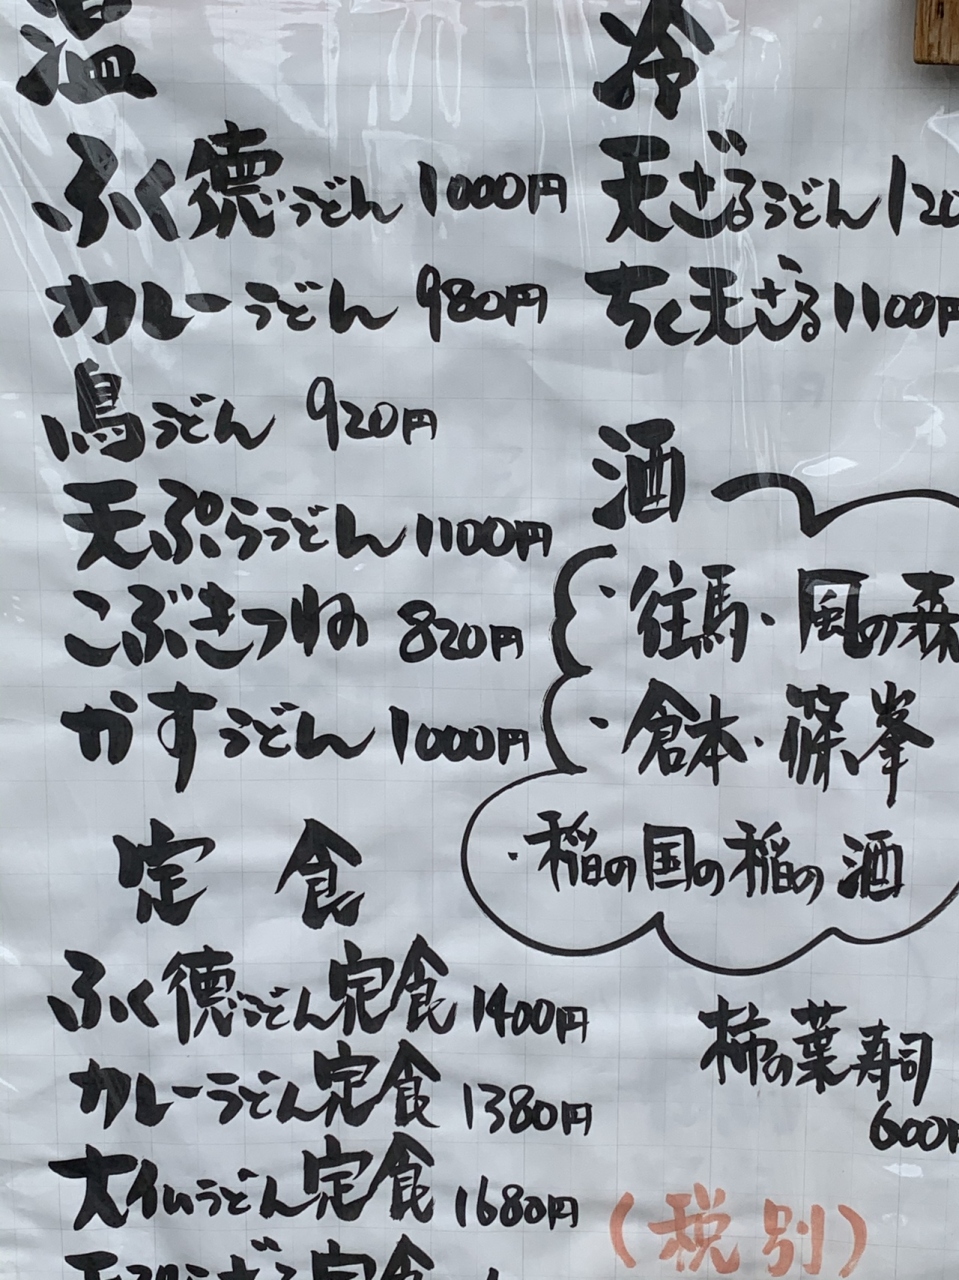 温
ふく徳うどん 1000円
カレーうどん 980円
鳥うどん 920円
天ぷらうどん 1100円
こぶきつね 820円
かすうどん 1000円
定食
ふく徳うどん定食 1400円
カレーうどん定食 1380円
大仏うどん定食 1680円
冷
天ざるうどん 120
ちく天ざる 1100円
酒
・往馬・風の森
・倉本・篠峯
・稲の国の稲の酒
柿の葉寿司
600円
(税別)